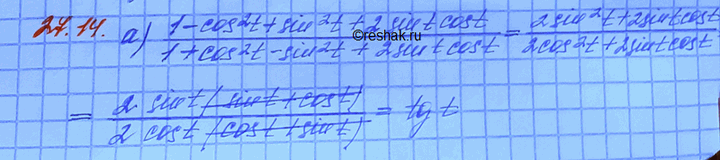 27.14. a) (1-cos²t+sin²t+2sint cost)/(1+cos²t-sin²t+2sint cost) = (2sin²t+2sintcost)/(2cos²t+2sintcost)
©reshak.ru
= (2 sint(sint+cost))/(2 cost(cost+sint)) = tg t